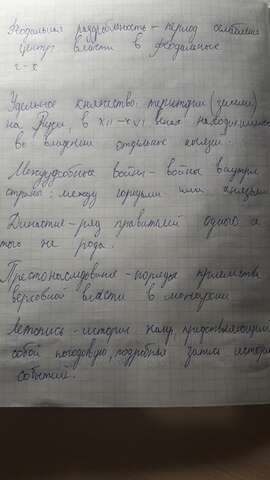 Феодальная раздробленность - период ослабления
центр. власти в феодальных
г-х
Удельное княжество - территории (земли)
на Руси, в XII-XVI веках находившиеся
во владении отдельных князей.
Междоусобные войны - войны внутри
страны: между городами или князьями
Династия - ряд правителей одного и
того же рода.
Престолонаследование - порядок приемства
верховной власти в монархии
Летопись - историч. жанр, представляющий
собой погодовую, подробную запись историч.
событий.